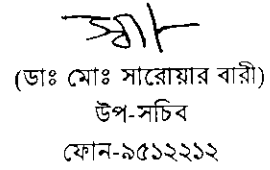 (ডাঃ মোঃ সারোয়ার বারী)
উপ-সচিব
ফোন-৯৫১২২১২